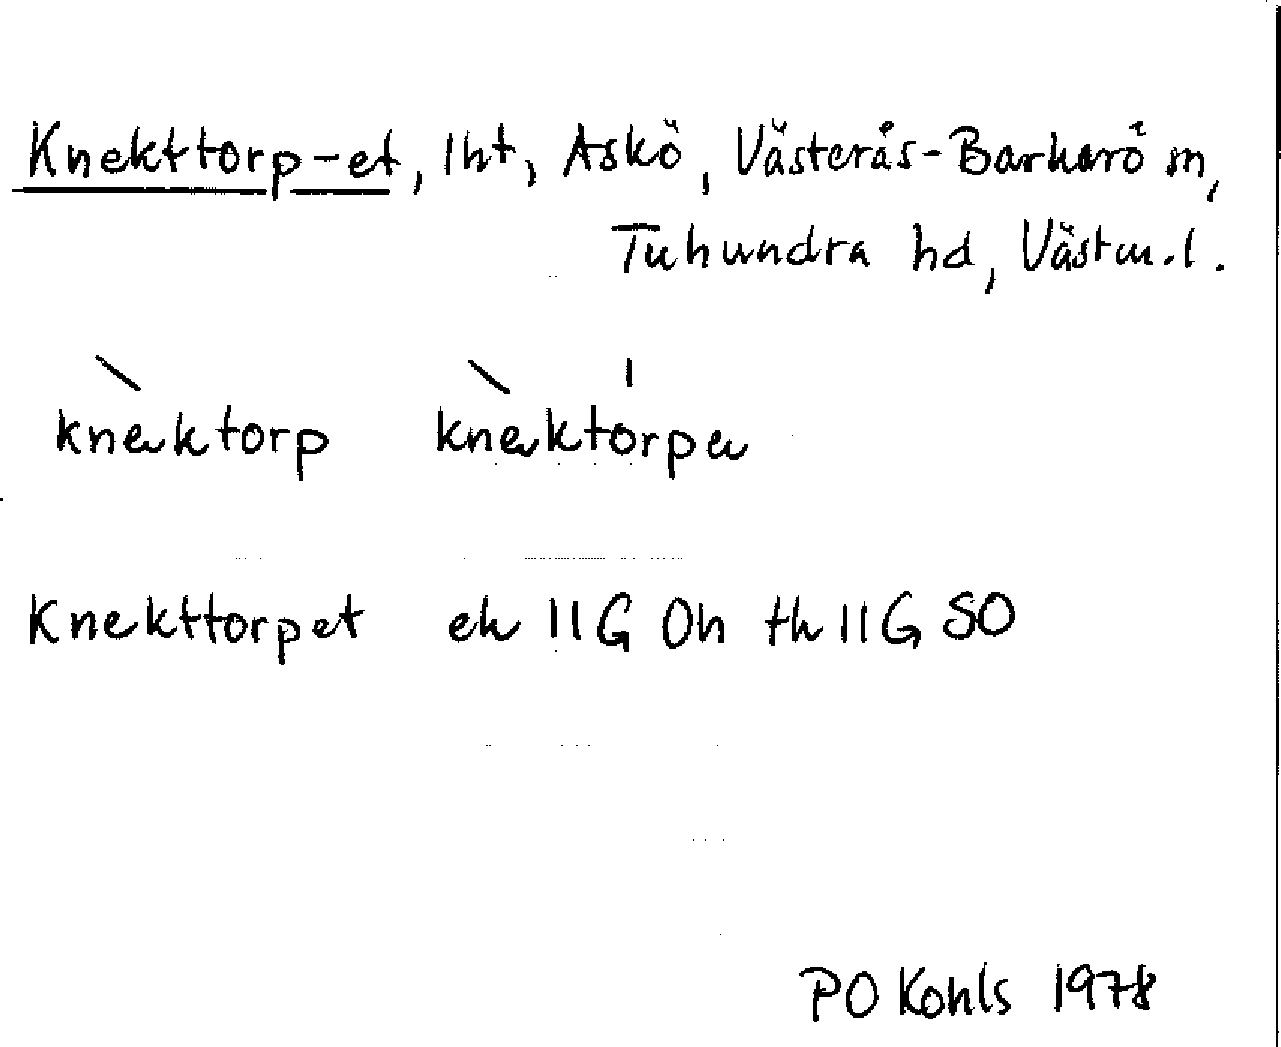 Knekttorp-et, lht, Askö, Västerås-Barkarö sn,
Tuhundra hd, Västm.l.
knæktorp knæktorpa
Knekttorpet ek 11G 0h th 11G SO
PO Kohls 1978